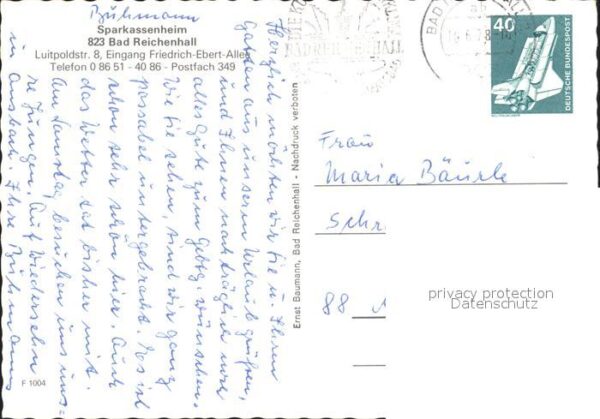 Bühmann
Sparkassenheim
823 Bad Reichenhall
Luitpoldstr. 8, Eingang Friedrich-Ebert-Allee
Telefon 0 86 51 - 40 86 - Postfach 349
Herzlich möchten wir Sie u. Ihren
Gatten aus unserem Urlaub grüßen,
und Ihnen nachträglich nur
alles Gute zum Gebtg. wünschen.
Wie Sie sehen, sind wir ganz
passabel untergebracht. Es ist
schon sehr schön hier. Auch
das Wetter tat bisher mit.
Am Samstag besuchen uns uns-
re Jungen. Auf Wiedersehn
in Ansbach. Ihre Bühmanns
F 1004
Ernst Baumann, Bad Reichenhall - Nachdruck verboten
BAD REICHENHALL
BAD
40
DEUTSCHE BUNDESPOST
Frau
Maria Bäurle
Schr
88 A
privacy protection
Datenschutz